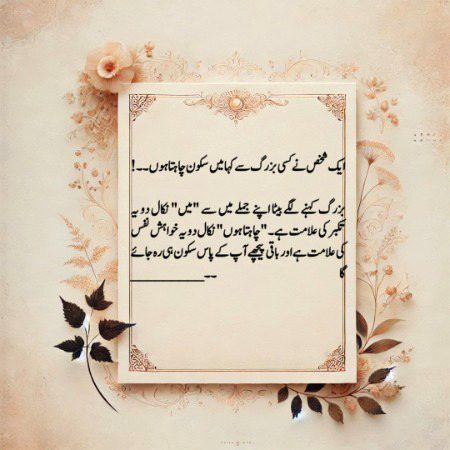 ایک شخص نے کسی بزرگ سے کہا میں سکون چاہتا ہوں۔۔!
بزرگ کہنے لگے بیٹا اپنے جملے میں سے "میں" نکال دو یہ
تکبر کی علامت ہے۔ "چاہتا ہوں" نکال دو یہ خواہش نفس
کی علامت ہے اور باقی پیچھے آپ کے پاس سکون ہی رہ جائے
گا ۔۔__________